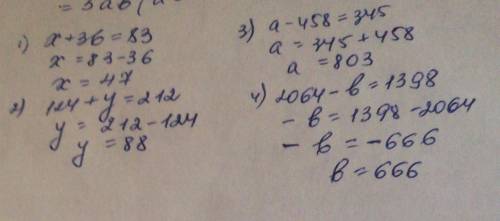 = 3ab(a
1) x+36=83
x=83-36
x=47
2) 124+y=212
y=212-124
y=88
3) a-458=345
a=345+458
a=803
4) 2064-в=1398
-в=1398-2064
-в=-666
в=666